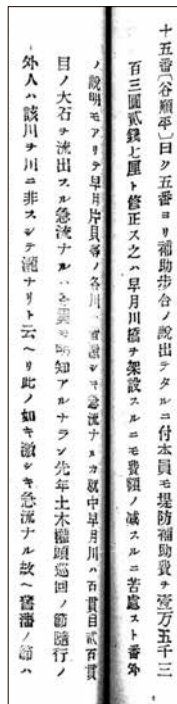 十五番〔谷順平〕曰ク五番ヨリ補助歩合ノ說出テタルニ付本員モ堤防補助費ヲ壹万五千三
百三圓貳錢七厘ト修正ス之ハ早月川橋ヲ架設スルニモ費額ノ减スルニ苦慮スト番外
ノ說明モアリテ早月片貝等ノ各川ハ實ニ激シキ急流ナルカ就中早月川ハ百貫目貳百貫
目ノ大石ヲ流出スル急流ナルハ各員モ明知アルナラン先年土木權頭巡回ノ節隨行ノ
外人ハ該川ヲ川ニ非スシテ瀧ナリト云ヘリ此ノ如キ激シキ急流ナル故ヘ舊藩ノ節ハ